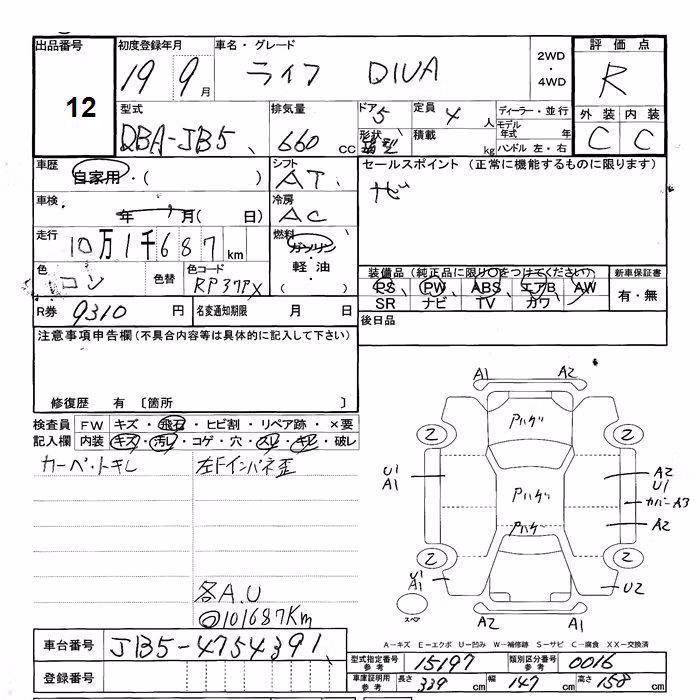 出品番号 初度登録年月 車名・グレード 評価点
12 19 9月 ライフ DIVA 2WD・4WD R
型式 排気量 ドア 定員 ディーラー・並行 外装 内装
DBA-JB5 660 CC 5 4人 モデル年式 年 C C
形状 積載 kg ハンドル 左・右
車歴 自家用・( ) シフト AT セールスポイント (正常に機能するものに限ります)
車検 年 月( 日) 冷房 AC ナビ
走行 10万1千687km 燃料 ガソリン・軽油( )
色 コン 色替 色コード RP37PX 装備品(純正品に限り○をつけてください) 新車保証書
PS PW ABS エアB AW 有・無
SR ナビ TV カワ
R券 9310円 名変通知期限 月 日 後日品
注意事項申告欄(不具合内容等は具体的に記入して下さい)
修復歴 有 〔箇所 〕
検査員 FW キズ・飛石・ヒビ割・リペア跡・×要
記入欄 内装 キズ・汚レ・コゲ・穴・スレ・キレ・破レ
カーペットキレ 左Fインパネ歪
各A.U
◎101687Km
A1 A2
アハゲ
2 2
U1 A1 アハゲ A2 U1
カバーA3
アハゲ A2
2 2
U1 A1 U2
スペア A2 A1
A-キズ E-エクボ U-凹み W-補修跡 S-サビ C-腐食 XX-交換済
車台番号 JB5-4754391
登録番号
型式指定番号 参考 15197 類別区分番号 参考 0016
車庫証明用 参考 長さ 339cm 幅 147cm 高さ 158cm